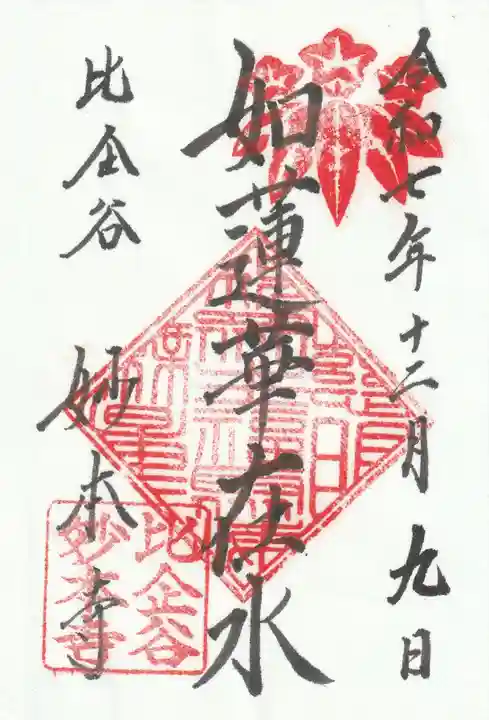 令和七年十二月九日
如蓮華在水
比企谷
妙本寺
比企谷
妙本寺